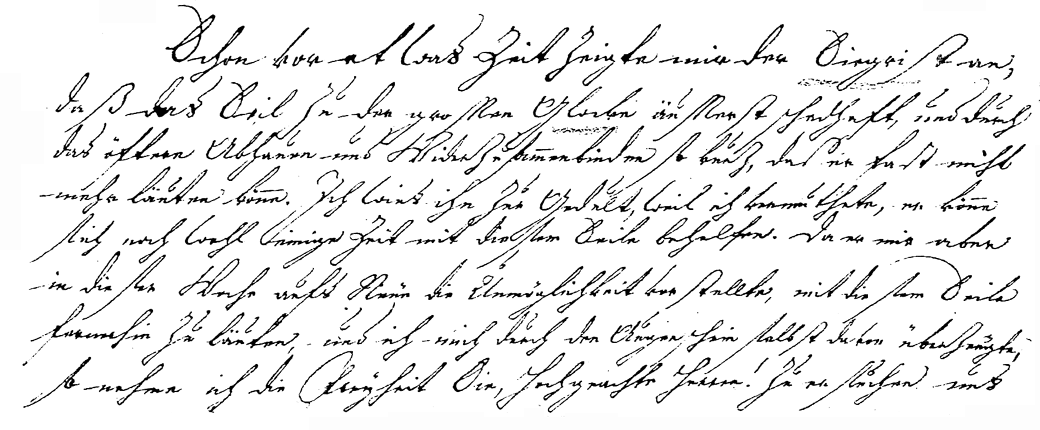 Schon vor etwas Zeit zeigte mir der Siegrist an,
daß das Seil zu der grossen Glocke äusserst schadhaft, und durch
das öftere Abhauen und Widerzusammenbinden so kurz, daß er fast nicht
mehr läuten könne. Ich wies ihn zur Gedult, weil ich vermuthete, er könne
sich noch wohl einige Zeit mit diesem Seile behelfen. Da er mir aber
in dieser Woche aufs Neüe die Unmöglichkeit vorstellte, mit diesem Seile
fernerhin zu läuten, und ich mich durch den Augenschein selbst davon überzeugte,
so nehme ich die Freyheit Sie, Hochgeachte Herren! zu ersuchen uns